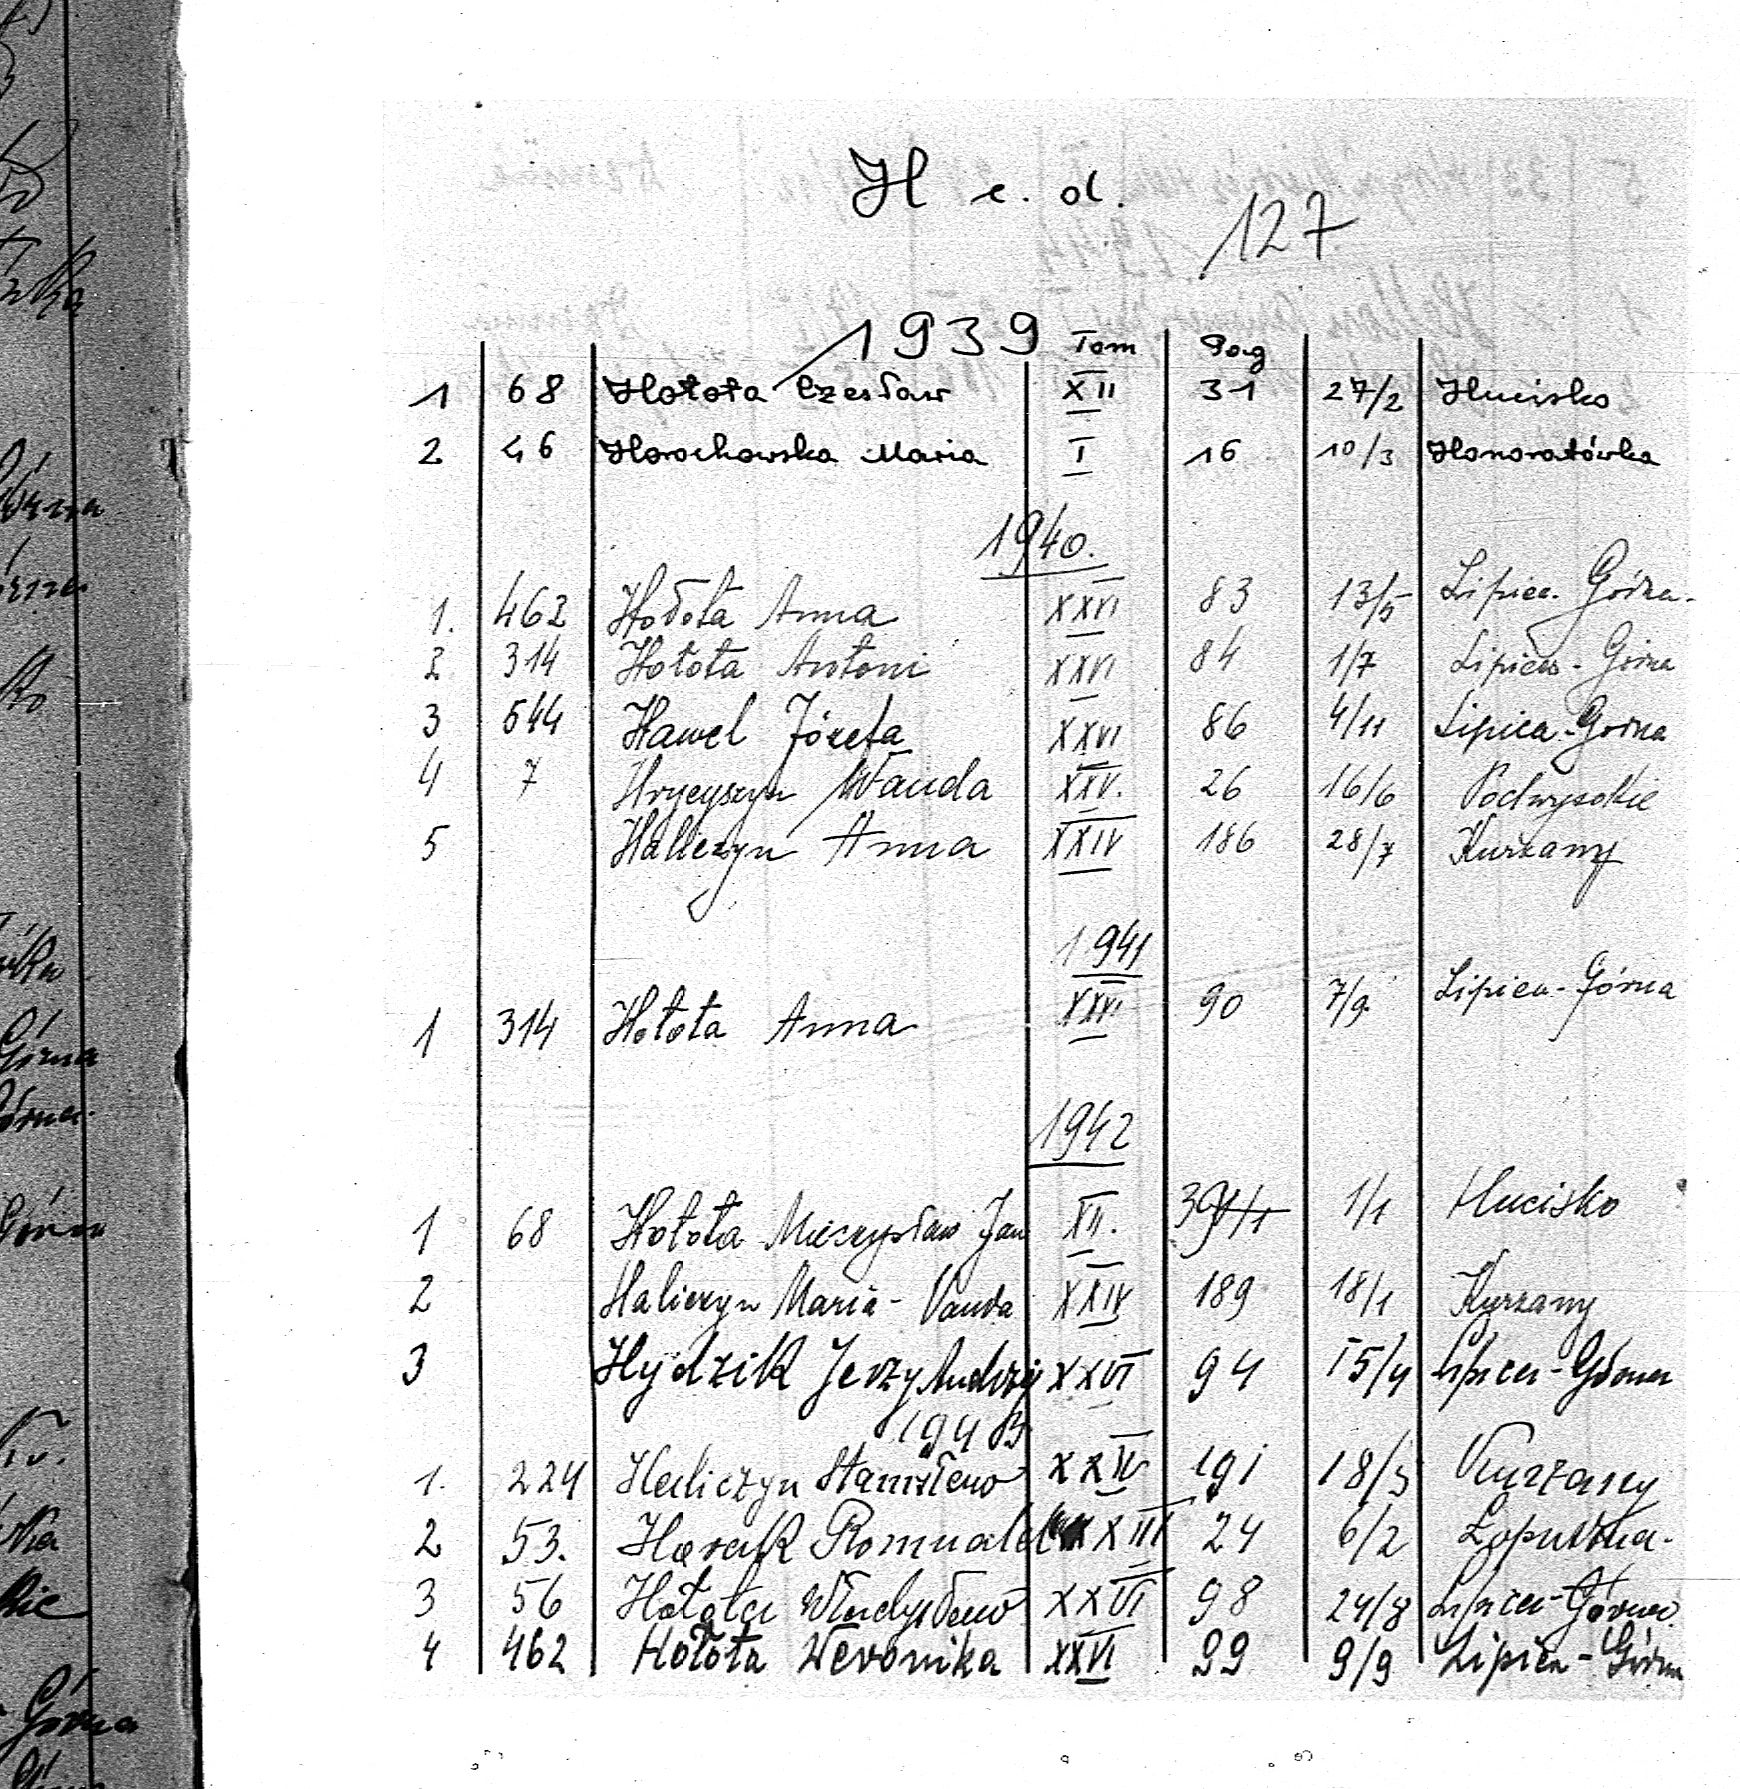 H c. d.
127
1939 Tom Pag
1 68 Hołota Czesław XII 31 27/2 Hucisko
2 46 Horochowska Maria I 16 10/3 Honoratówka
1940.
1. 462 Hołota Anna XXVI 83 13/5 Lipica Górna.
2 314 Hołota Antoni XXVI 84 1/7 Lipica - Górna
3 544 Hawel Józefa XXVI 86 4/11 Lipica - Górna
4 7 Hrycyszyn Wanda XXV. 26 16/6 Podwysokie
5 Haliczyn Anna XXIV 186 28/7 Kurzany
1941
1 314 Hołota Anna XXVI 90 7/9. Lipica - Górna
1942
1 68 Hołota Mieczysław Jan XII. 1/1 Hucisko
2 Haliczyn Maria - Vanda XXIV 189 18/1 Kurzany
3 Hydzik Jerzy Andrzej XXVI 94 15/4 Lipica - Górna
1943
1. 224 Haliczyn Stanisław 191 18/3 Kurzany
2 53. Romuald 24 6/2 Łopuszna.
3 56 Hołota Władysław XXVI 98 24/8 Lipica - Górna.
4 462 Hołota Weronika XXVI 99 9/9 Lipica - Górna